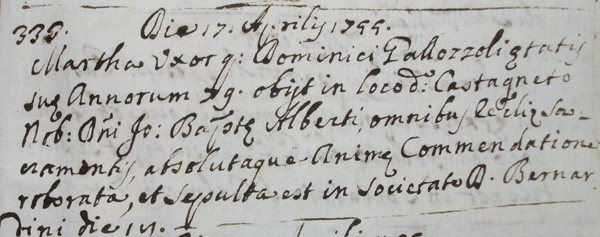 339. Die 17. Aprilis 1755.
Martha Uxor q: Dominici Gallozzoli ętatis
suę Annorum 79. obijt in loco d: Castagneto
Nob: Dñi Jo: Baptę Alberti, omnibus Ecclię Sa-
cramentis, absolutaque Animę Commendatione
roborata, et sepulta est in Societate D. Bernar
dini die